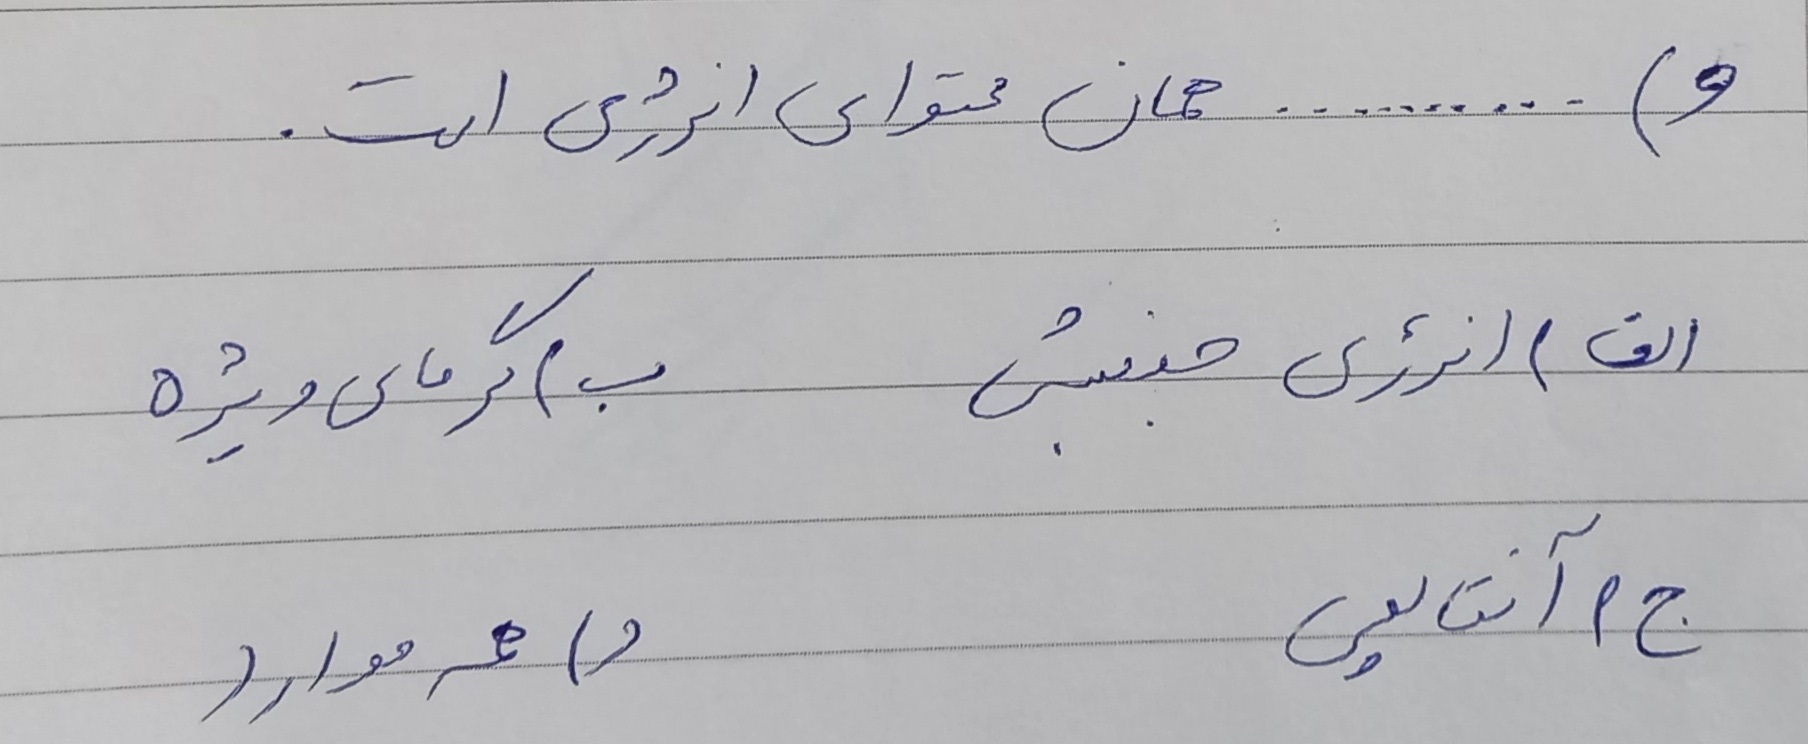 و) ........... همان محتوای انرژی است.
الف) انرژی جنبشی ب) گرمای ویژه
ج) آنتالپی د) همه موارد